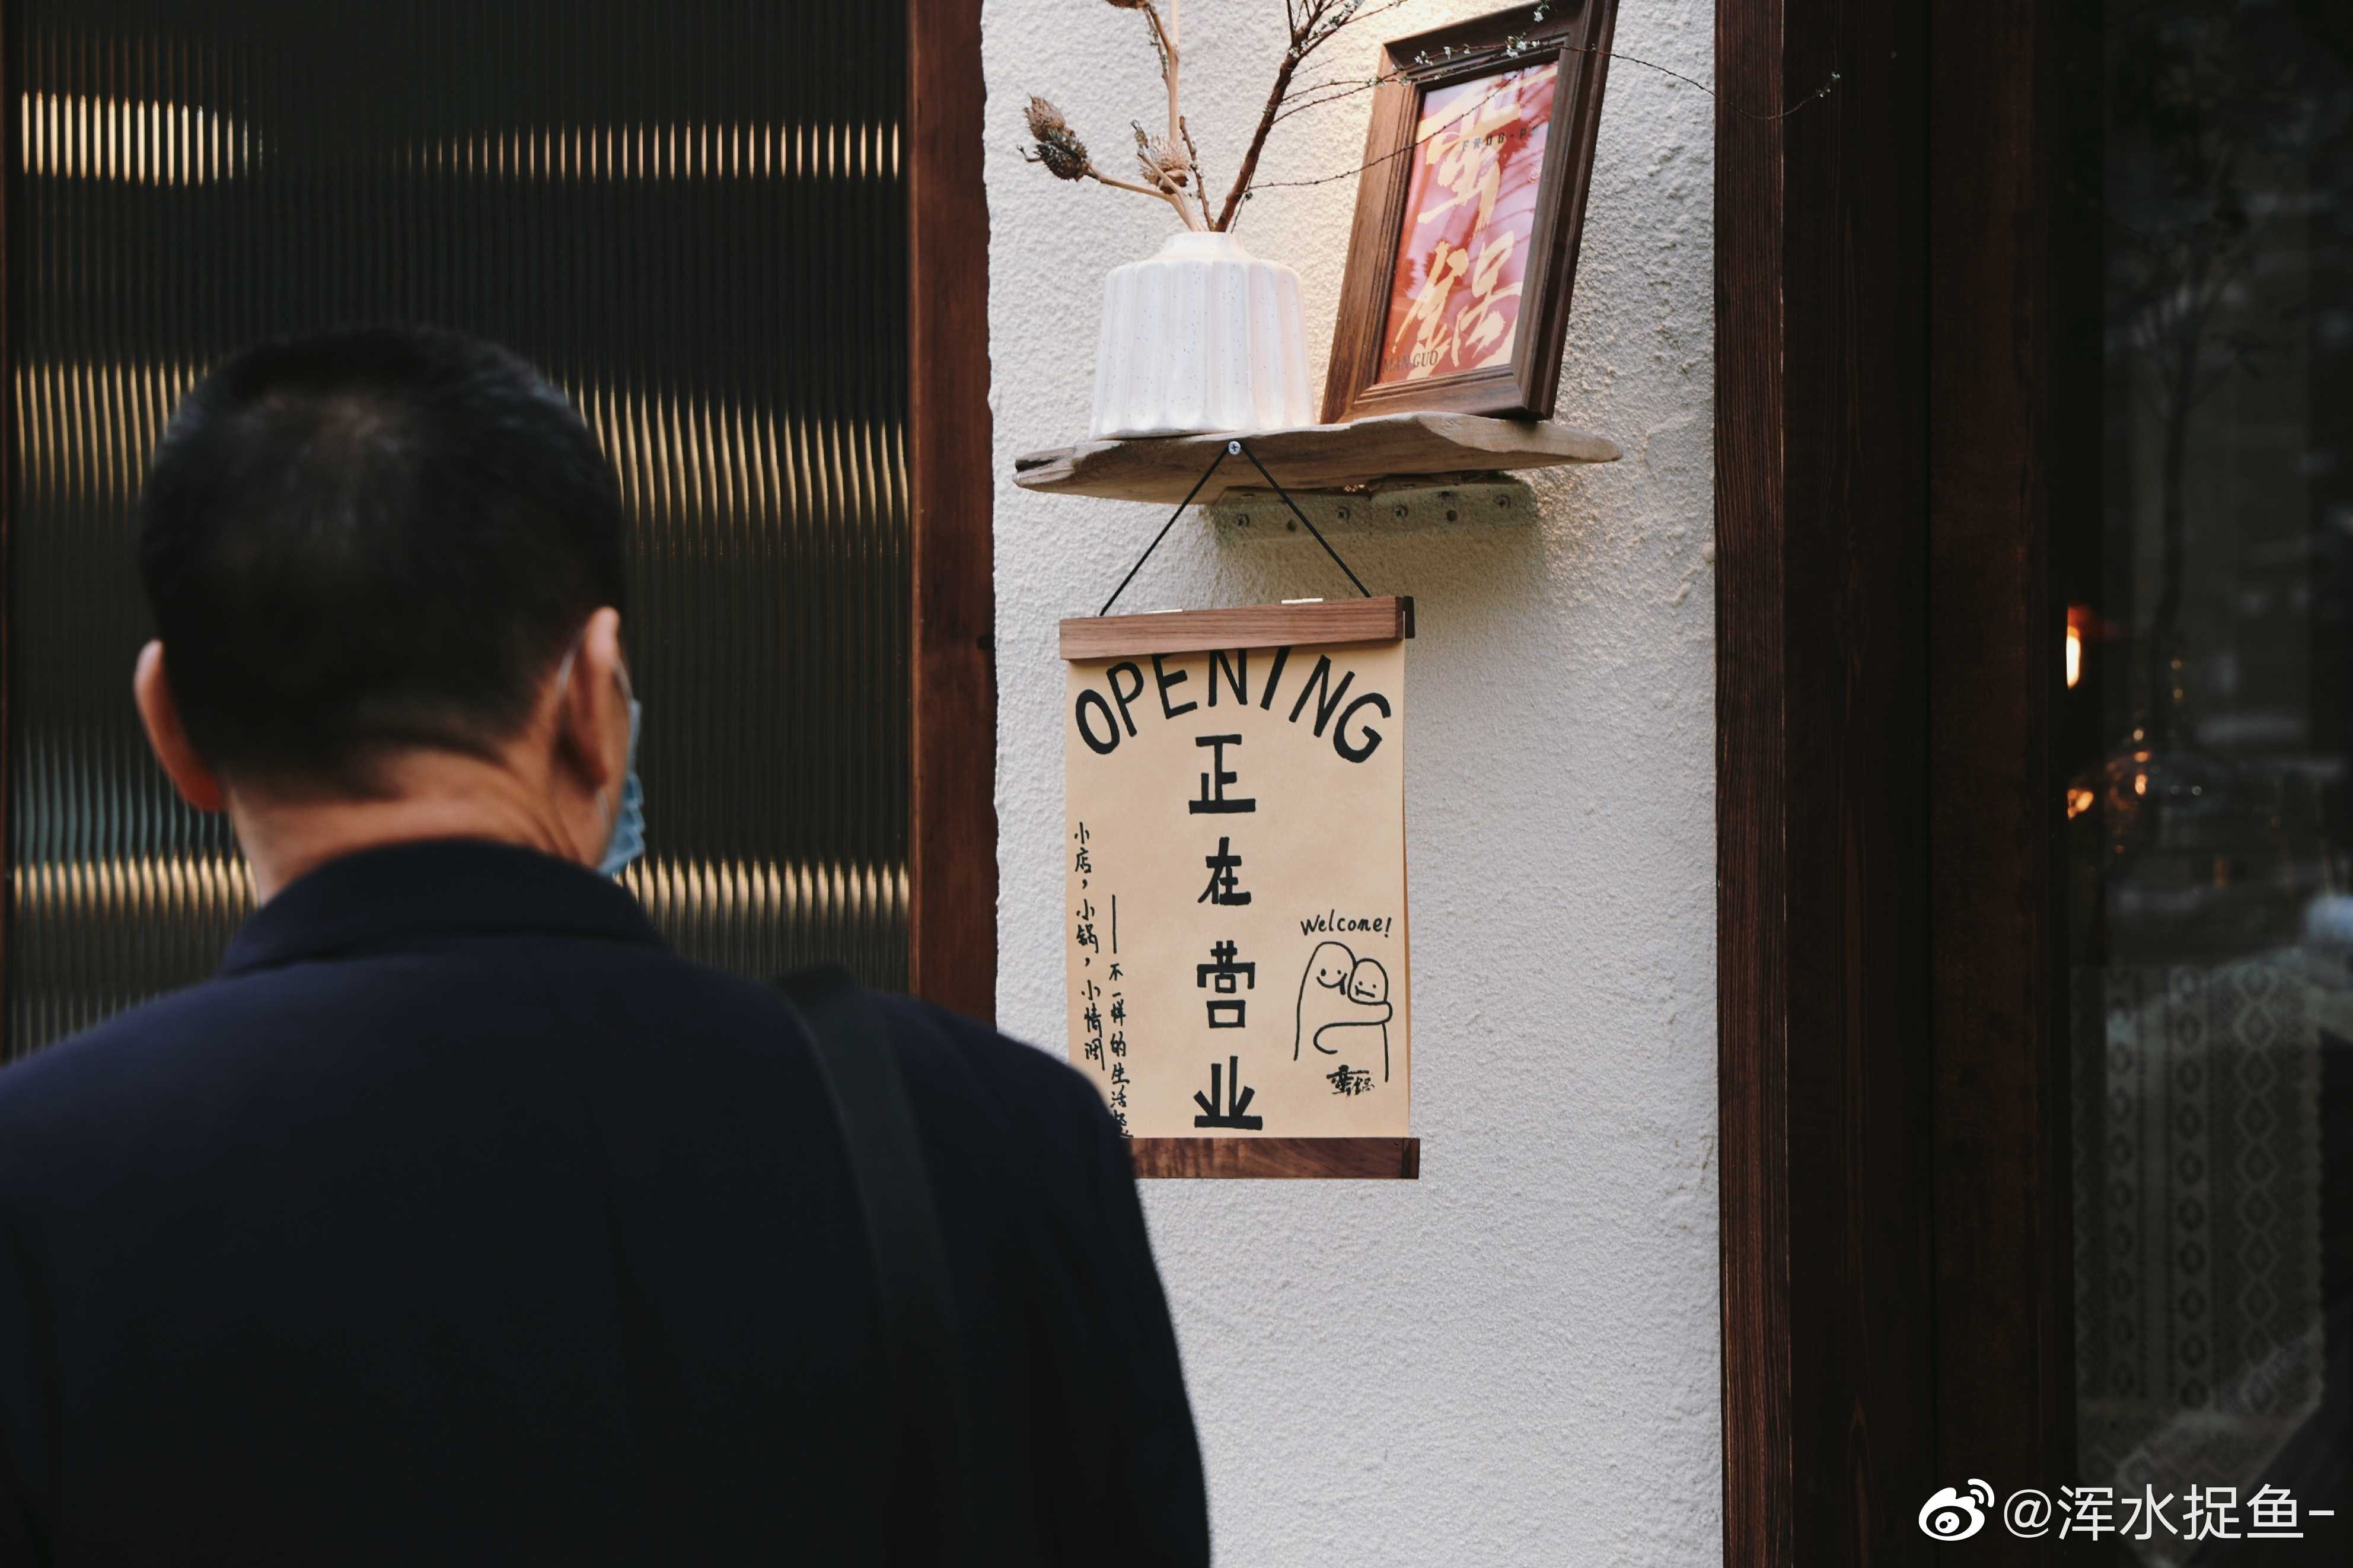 蛮锅
MAN GUO
OPENING
正在营业
小店，小锅，小情调
——不一样的生活
Welcome!
蛮锅
@浑水捉鱼-